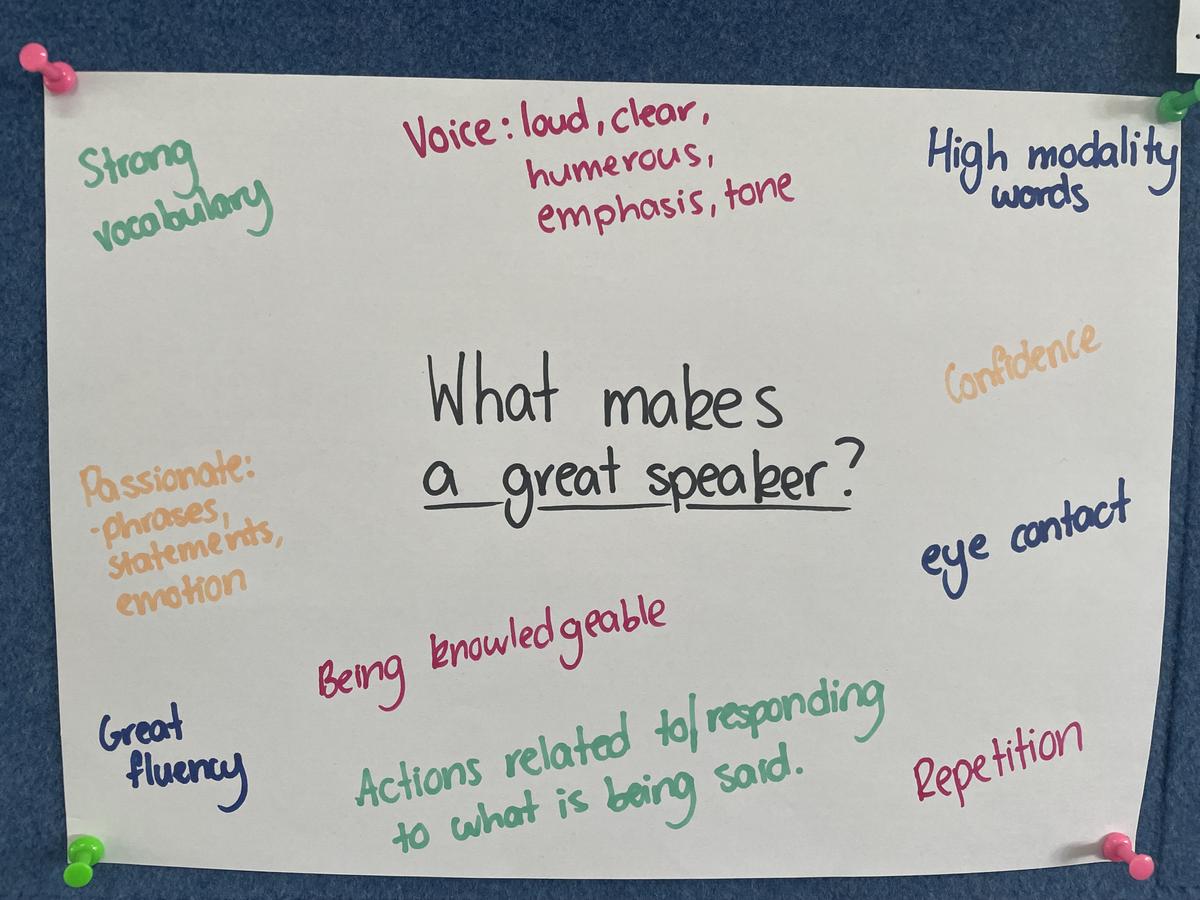 Strong
vocabulary
Voice: loud, clear,
humerous,
emphasis, tone
High modality
words
What makes
a great speaker?
Confidence
Passionate:
-phrases,
statements,
emotion
eye contact
Being knowledgeable
Great
fluency
Actions related to/responding
to what is being said.
Repetition